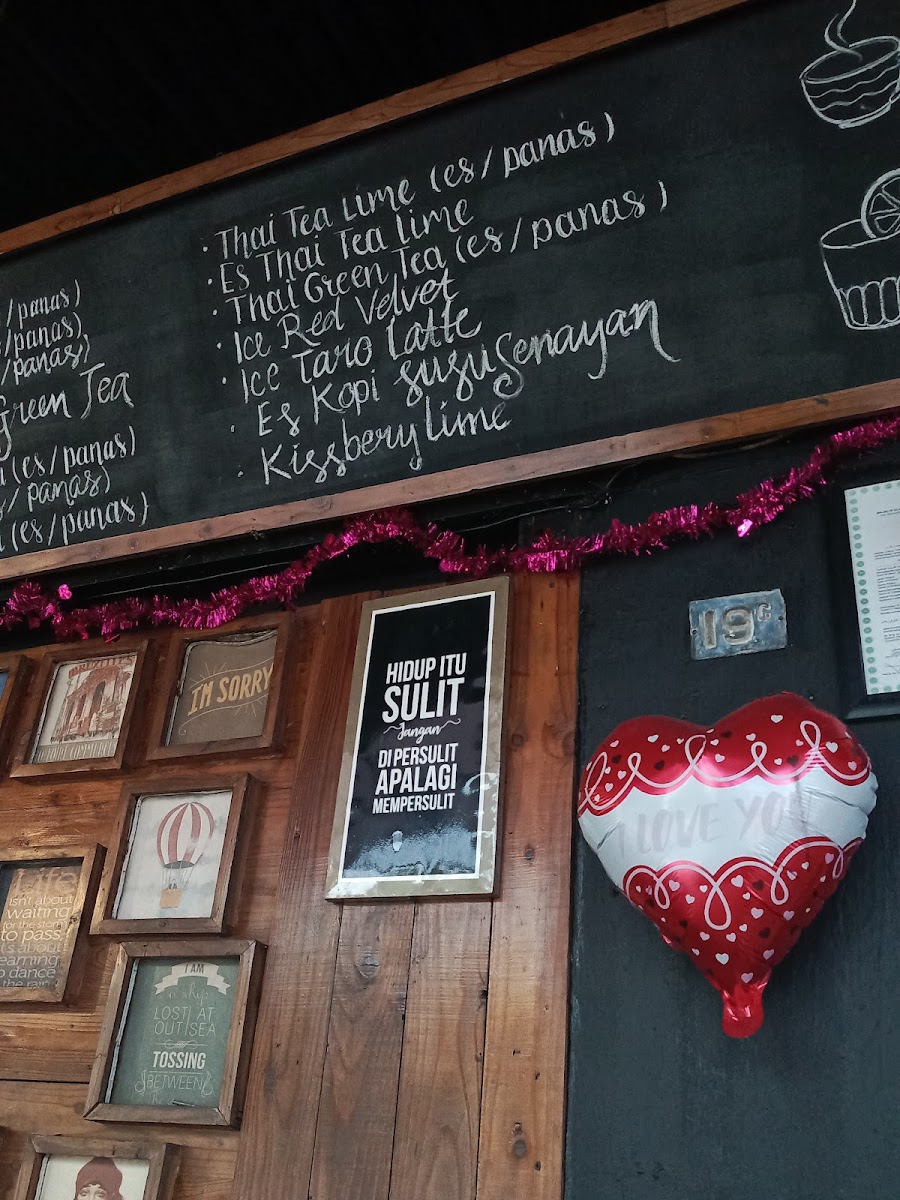 /panas)
s/panas)
/panas)
Green Tea
(es/panas)
s/panas)
(es/panas)
• Thai Tea Lime (es/panas)
• Es Thai Tea Lime
• Thai Green Tea (es/panas)
• Ice Red Velvet
• Ice Taro Latte
• Es Kopi susu Senayan
• Kissbery lime
19 G
HIDUP ITU
SULIT
Jangan
DI PERSULIT
APALAGI
MEMPERSULIT
I'M SORRY
I LOVE YOU
Life
isn't about
waiting
for the storm
to pass
it's about
learning
to dance
the rain
I AM
a ship
LOST AT
OUT SEA
TOSSING
BETWEEN